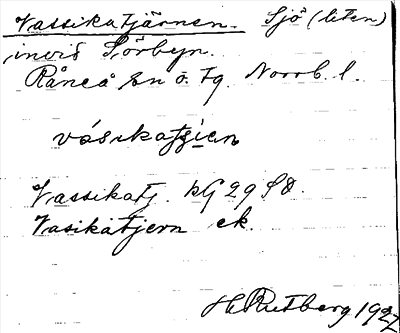 Vassikatjärnen. Sjö (liten)
invid Sörbyn.
Råneå sn o. tg. Norrb. l.
vásikatjien
Vassikatj. kG 29 SO.
Vasikatjern ek.
H Rutberg 1927